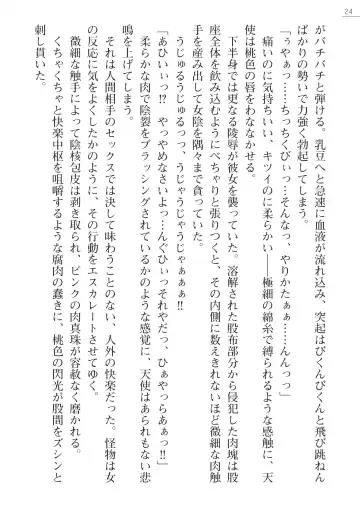 24
がバチバチと弾ける。乳豆へと急速に血液が流れ込み、突起はびくんびくんと飛び跳ねん
ばかりの勢いで力強く勃起してしまう。
「ぅやぁっ……ちっちくびぃっ……そんなっ、やりかたぁぁ……んんっっ」
痛いのに気持ちいい、キツイのに柔らかい――極細の綿糸で縛られるような感触に、天
使は桃色の唇をわななかせる。
下半身では更なる陵辱が彼女を襲っていた。溶解された股布部分から侵犯した肉塊は股
座全体を飲み込むようにべちゃりと張りつくと、その内側に数えきれないほど微細な肉触
手を産み出して女陰を隅々まで貪っていた。
うじゅるうじゅるっっ、うじゃうじゃうじゃぁぁ!!
「あひいぃっ!? やっやめなさいよっ…んぐひぃっそれやだっ、ひぁやっらあぁっ!!」
柔らかな肉で陰裂をブラッシングされているかのような感覚に、天使はあられもない悲
鳴を上げてしまう。
それは人間相手のセックスでは決して味わうことのない、人外の快楽だった。怪物は女
の反応に気をよくしたかのように、その行動をエスカレートさせてゆく。
微細な触手によって陰核包皮は剥き取られ、ピンクの肉真珠が露わになる。
くちゃくちゃと快楽中枢を咀嚼するような腐肉の蠢きに、桃色の閃光が股間をズシンと
刺し貫いた。